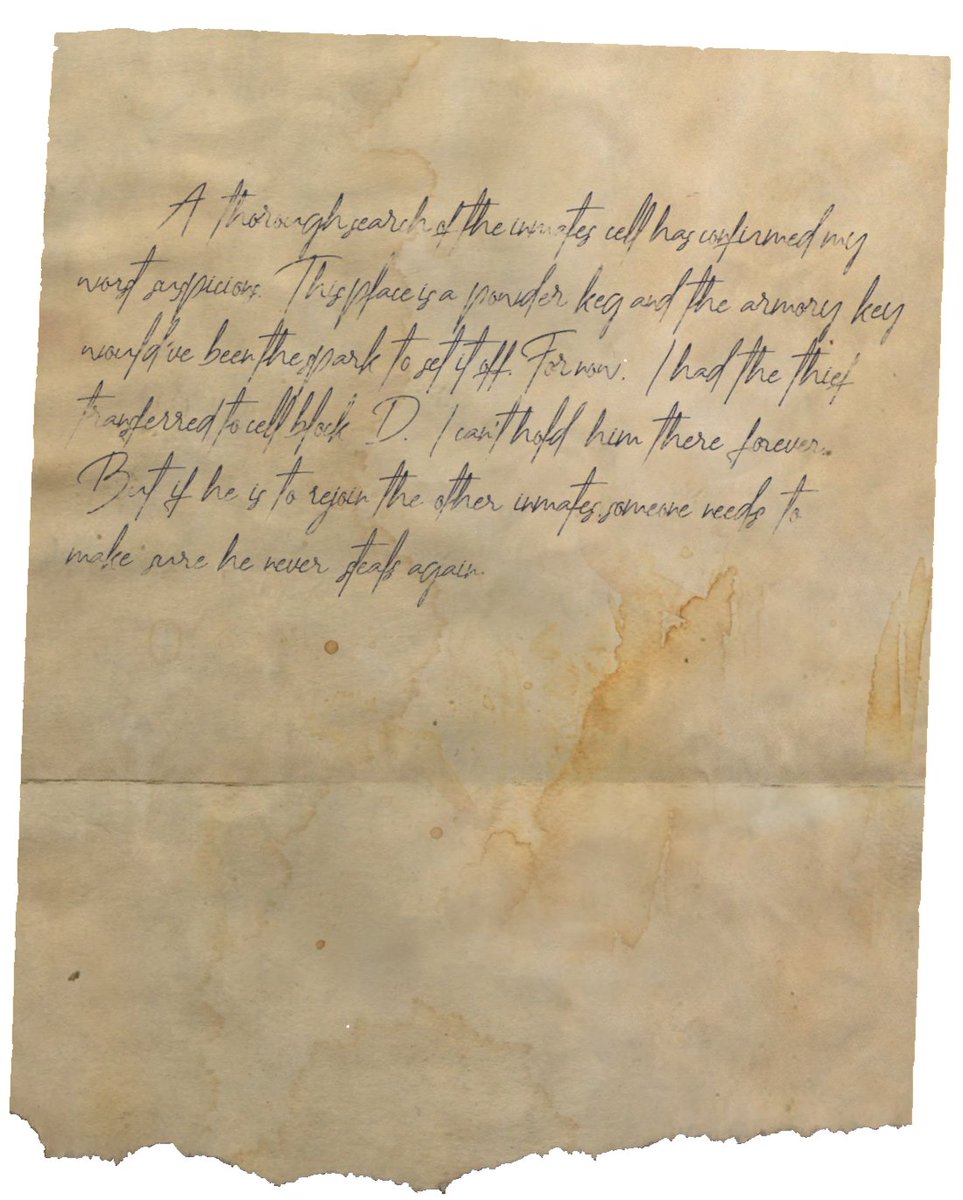 A thorough search of the inmates cell has confirmed my
worst suspicions. This place is a powder keg and the armory key
would've been the spark to set it off. For now. I had the thief
transferred to cell block D. I can't hold him there forever...
But if he is to rejoin the other inmates, someone needs to
make sure he never steals again.